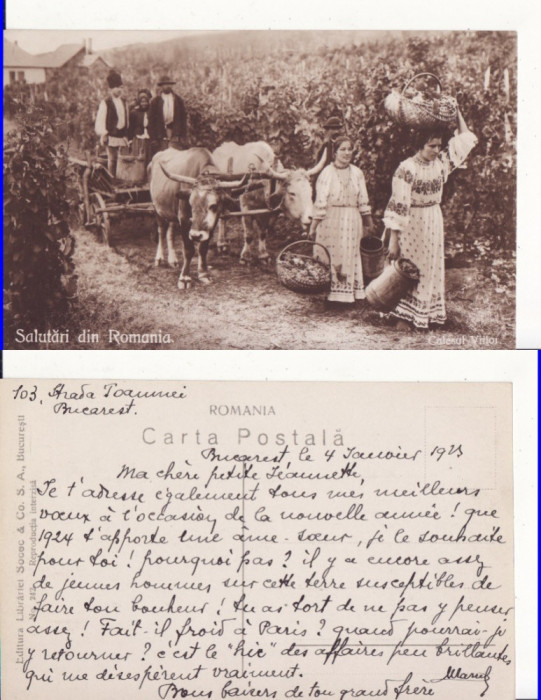 Salutări din Romania.
Culesul Viilor
103, Strada Toamnei
Bucarest.
ROMANIA
Carta Postală
Editura Librăriei Socec & Co. S. A., București
Reproducția interzisă
Bucarest le 4 Janvier 1923
Ma chère petite Jeannette,
Je t'adresse également tous mes meilleurs
vœux à l'occasion de la nouvelle année! que
1924 t'apporte une âme-sœur, je le souhaite
pour toi! pourquoi pas? il y a encore assez
de jeunes hommes sur cette terre susceptibles de
faire ton bonheur! tu as tort de ne pas y penser
assez! Fait-il froid à Paris? quand pourrai-je
y retourner? c'est le "hic" des affaires peu brillantes
qui me désespèrent vraiment.
Bons baisers de ton grand frère
Marcel